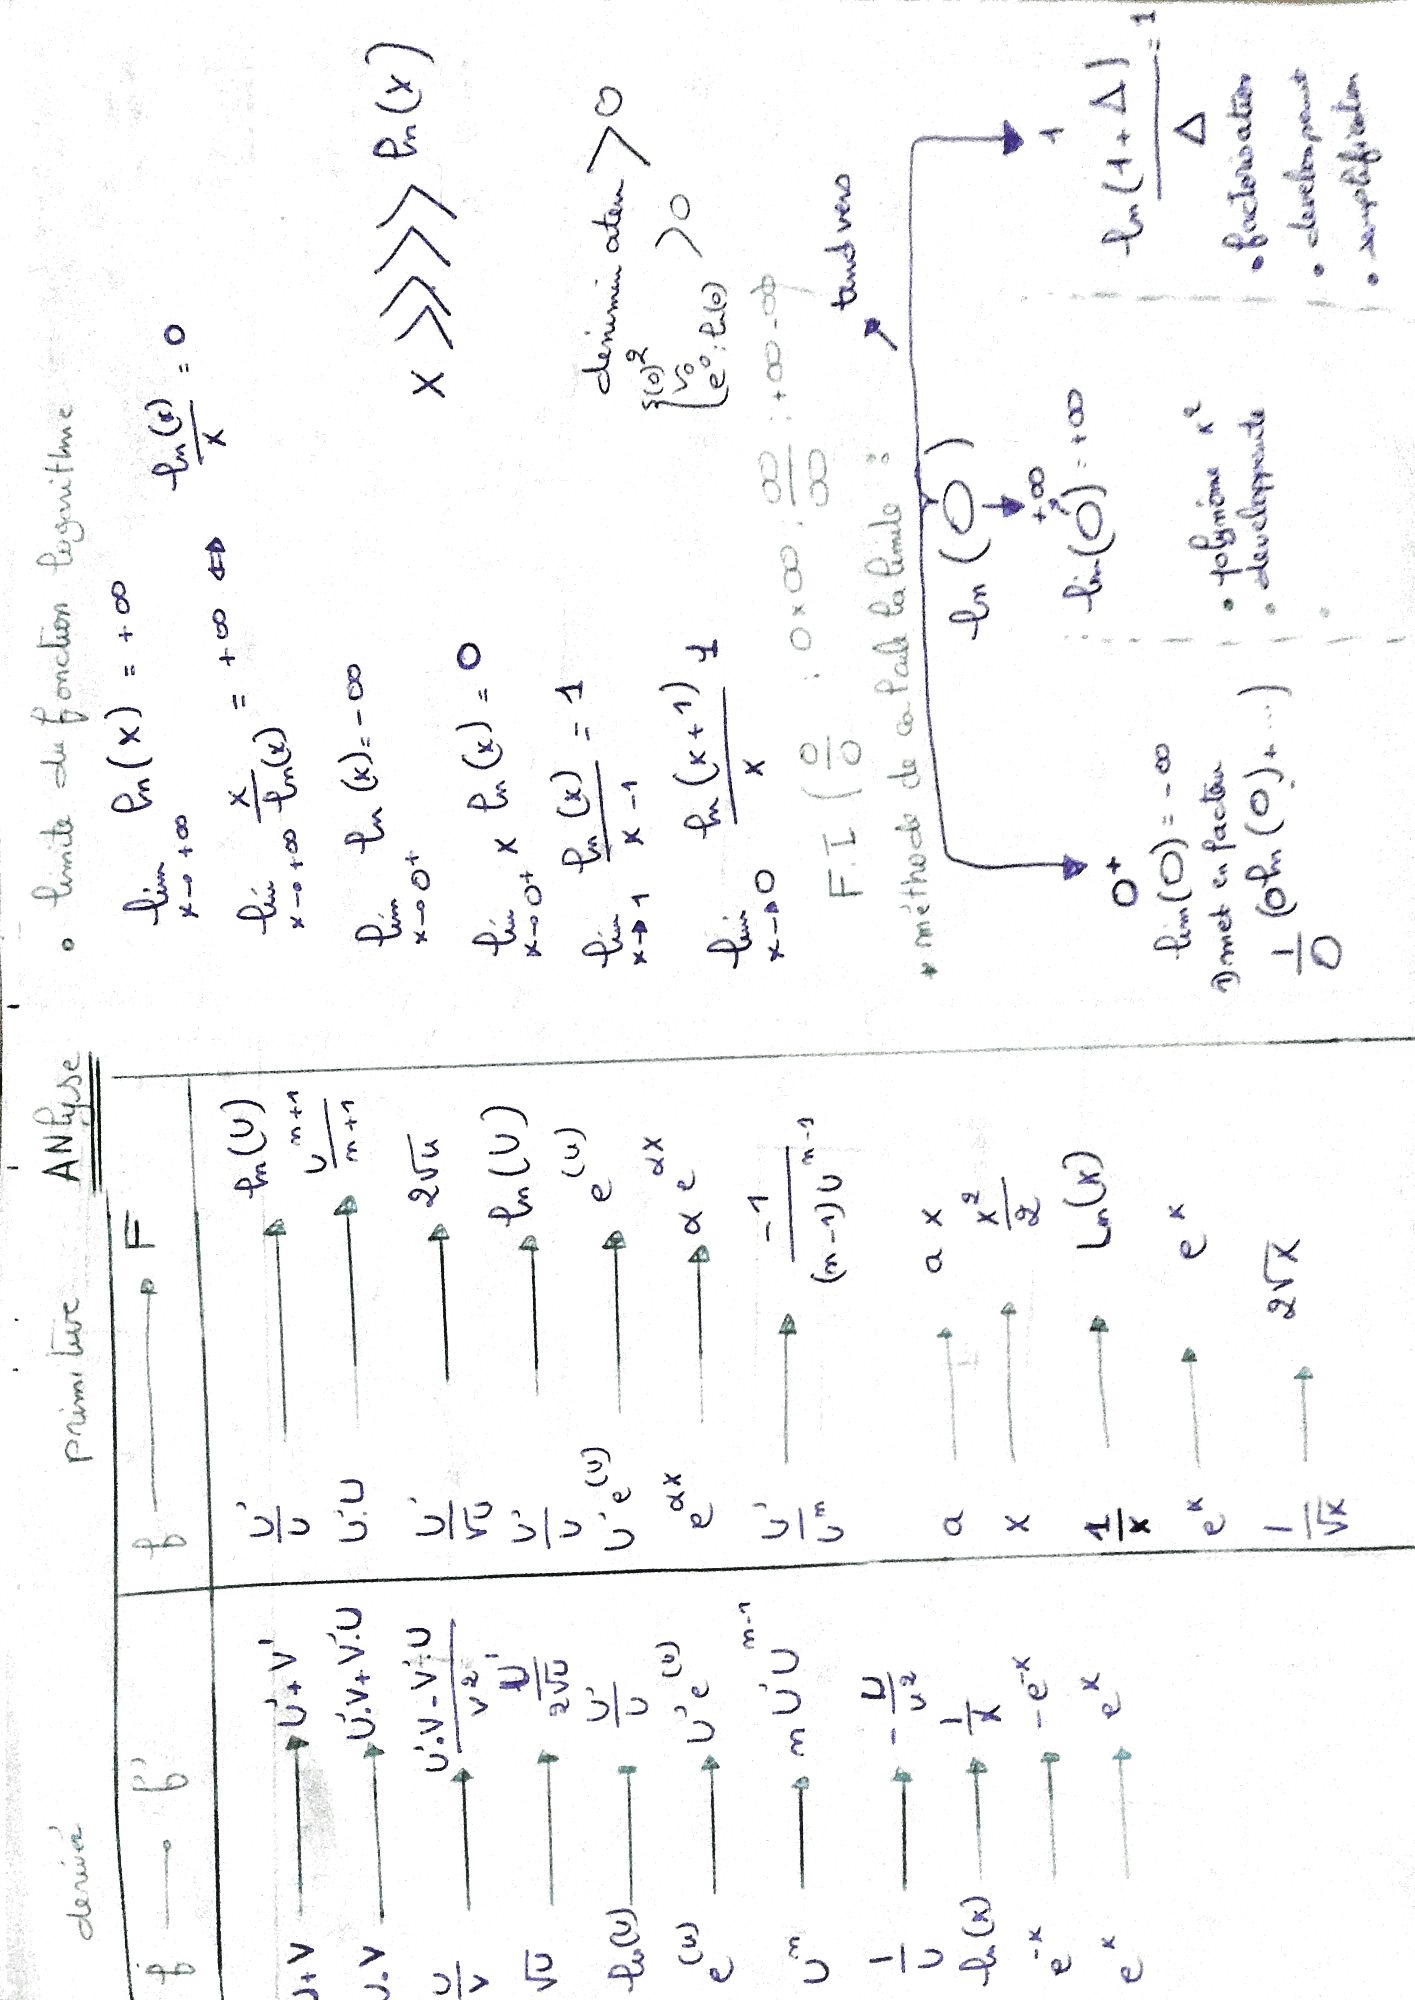 ANlyse
derivé
f → f'
U+V → U'+V'
U.V → U'.V+V'.U
U/V → U'.V-V'.U / V²
√U → U'/2√U
ln(U) → U'/U
e^(U) → U'e^(U)
U^n → n U'U^(n-1)
1/U → -U/U²
ln(x) → 1/x
e^-x → -e^-x
e^x → e^x
primitive
f → F
U'/U → ln(U)
U'.U → U^(n+1)/n+1
U'/√U → 2√U
U'/U → ln(U)
U'e^(U) → e^(U)
e^αx → α e^αx
U'/U^n → -1/(n-1)U^(n-1)
a → a x
x → x²/2
1/x → Ln(x)
e^x → e^x
1/√x → 2√x
• limite du fonction logarithme
lim x→+∞ ln(x) = +∞
lim x→+∞ x/ln(x) = +∞ ⇔ ln(x)/x = 0
lim x→0+ ln(x) = -∞
x >>>> ln(x)
lim x→0+ x ln(x) = 0
lim x→1 ln(x)/x-1 = 1
lim x→0 ln(x+1)/x 1
déniminateu > 0
{(0)² √0 e^0 : ln(0) > 0
F.I ( 0/0 : 0×∞ : ∞/∞ : +∞-∞
* méthode de calcule la limite :
tand vers
ln(O)
0+
lim(O) = -∞
1) met en facteu
1/O (O ln(O)+...)
+∞
lim(O) = +∞
• polynôme x²
• developpente
1
ln(1+Δ)/Δ = 1
• factorisation
• developant
• simplification